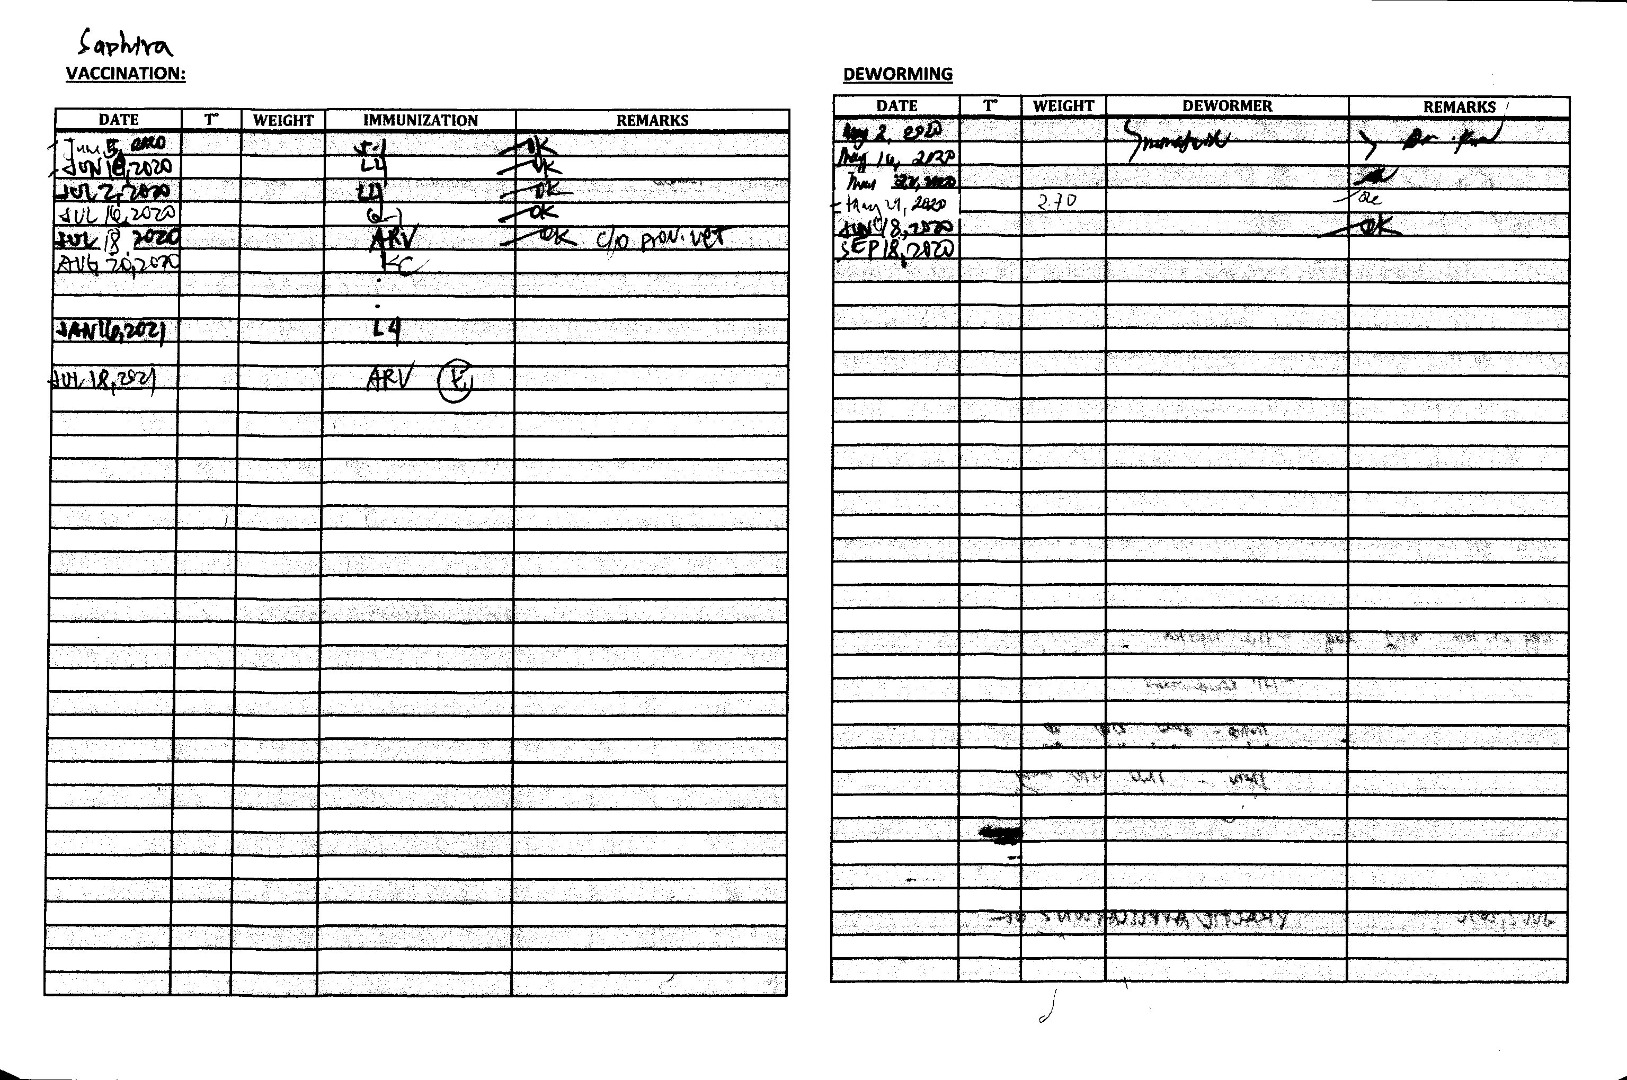 Saphira
VACCINATION:
DATE T° WEIGHT IMMUNIZATION REMARKS
Jun 5, 2020 5-1 OK
JUN 18, 2020 L4 OK
JUL 2, 2020 L4 OK
JUL 16, 2020 6-1 OK
JUL 18, 2020 ARV OK c/o prov. vet
AUG 20, 2020 KC
JAN 16, 2021 L4
JUL 18, 2021 ARV
DEWORMING
DATE T° WEIGHT DEWORMER REMARKS
May 2, 2020 Dr.
May 16, 2020
2020
May 21, 2020 2.70
JUN 18, 2020 OK
SEP 18, 2020